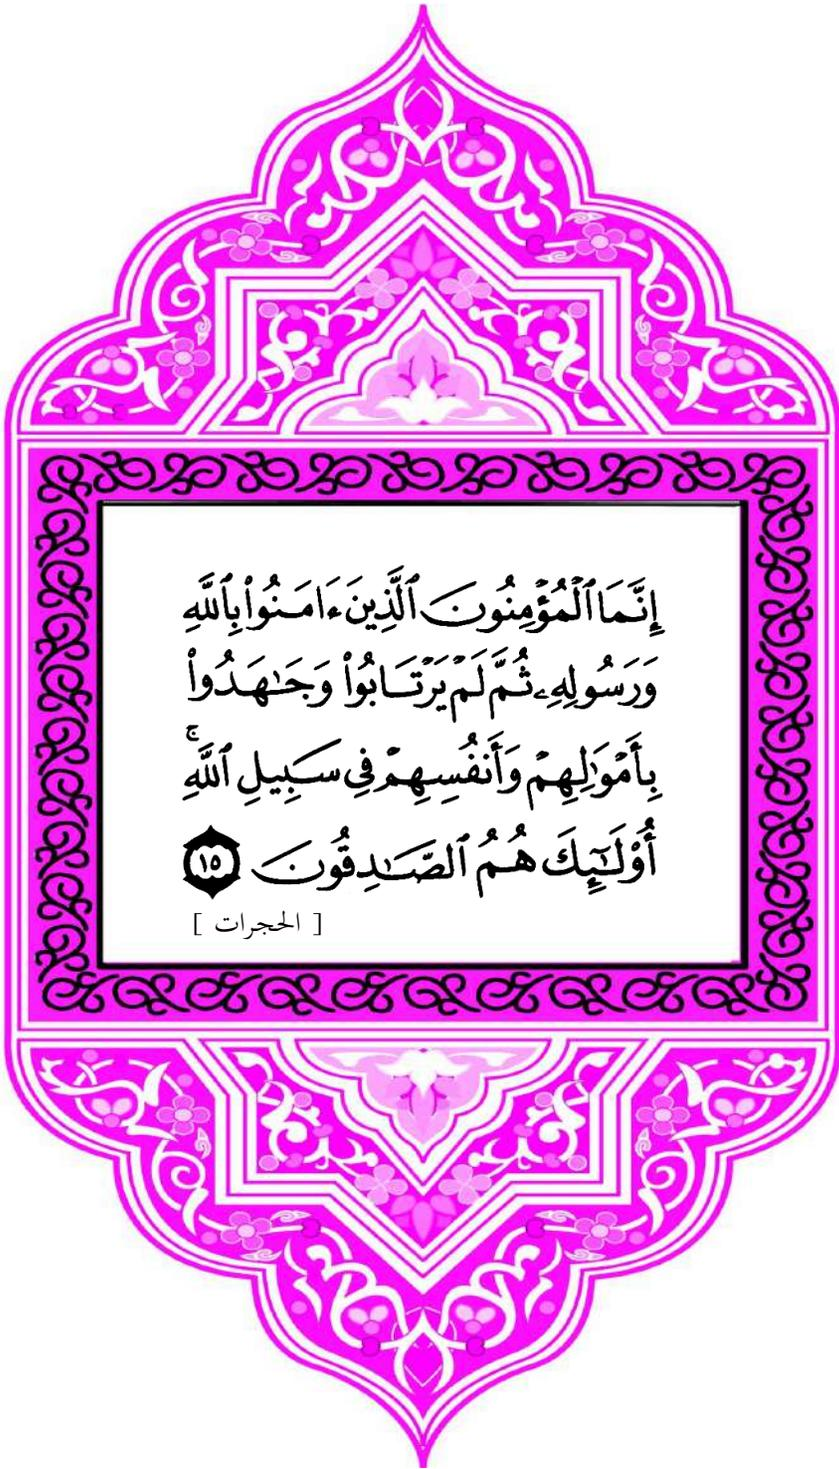 إِنَّمَا ٱلْمُؤْمِنُونَ ٱلَّذِينَ ءَامَنُوا۟ بِٱللَّهِ
وَرَسُولِهِۦ ثُمَّ لَمْ يَرْتَابُوا۟ وَجَـٰهَدُوا۟
بِأَمْوَٰلِهِمْ وَأَنفُسِهِمْ فِى سَبِيلِ ٱللَّهِ ۚ
أُو۟لَـٰٓئِكَ هُمُ ٱلصَّـٰدِقُونَ ١٥
[ الحجرات ]